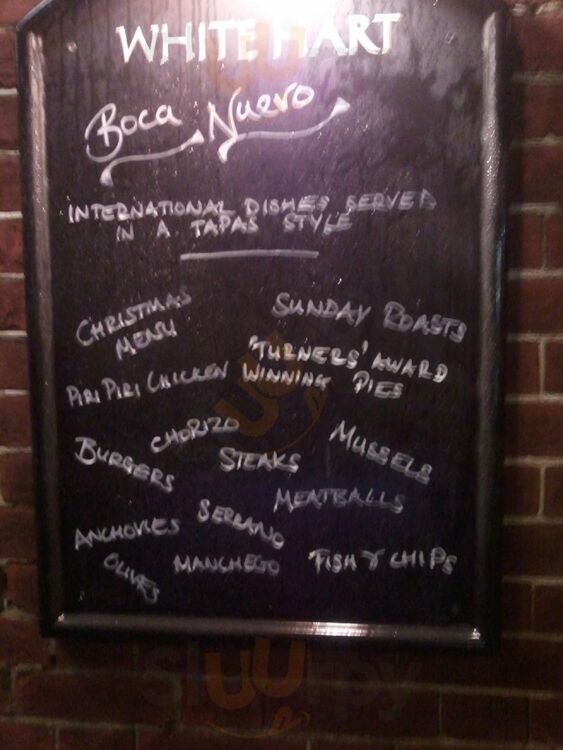 WHITE HART
Boca Nuevo
INTERNATIONAL DISHES SERVED
IN A TAPAS STYLE
CHRISTMAS
MENU
SUNDAY ROASTS
'TURNERS' AWARD
WINNING PIES
PIRI PIRI CHICKEN
CHORIZO
BURGERS
STEAKS
MUSSELS
MEATBALLS
SERRANO
ANCHOVIES
OLIVES
MANCHEGO
FISH & CHIPS
sluurpy